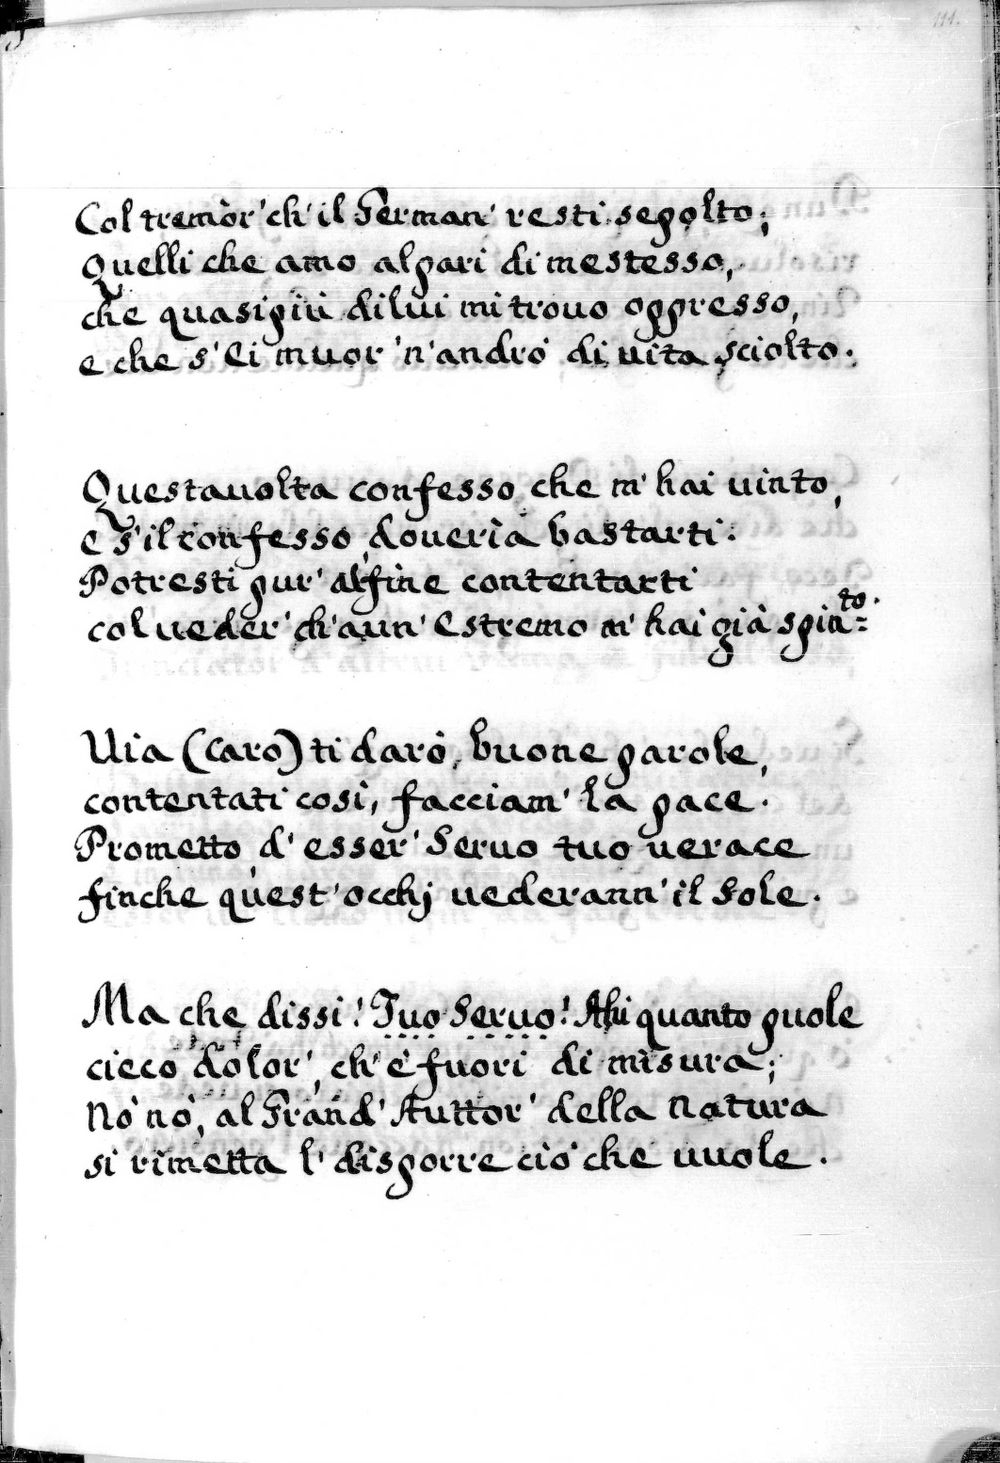 111.
Col tremòr' ch' il German' resti sepolto;
Quelli che amo al pari di mestesso,
che quasi più di lui mi trouo oppresso,
e che s' Ei muor' n' andrò di uita sciolto.
Questauolta confesso che m' hai uinto,
e s' il confesso doueria bastarti:
Potresti pur' alfine contentarti
col ueder' ch' a un' Estremo m' hai già spin=
to.
Uia (Caro) ti darò buone parole,
contentati così, facciam' la pace.
Prometto d' esser' Seruo tuo uerace
finche quest' occhj uederann' il Sole.
Ma che dissi! Tuo Seruo! Ahi quanto puole
cieco dolor', ch' è fuori di misura;
Nò nò, al Grand' Auttor' della Natura
si rimetta l' disporre ciò che uuole.